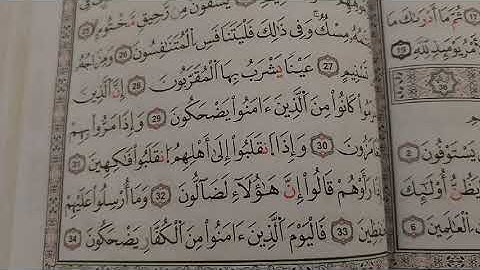 يُسْقَوْنَ مِن رَّحِيقٍ مَّخْتُومٍ ٢٥
مِسْكٌ ۚ وَفِي ذَٰلِكَ فَلْيَتَنَافَسِ الْمُتَنَافِسُونَ 26 وَمِزَاجُهُ
تَسْنِيمٍ 27 عَيْنًا يَشْرَبُ بِهَا الْمُقَرَّبُونَ 28 إِنَّ الَّذِينَ
كَانُوا مِنَ الَّذِينَ ءَامَنُوا يَضْحَكُونَ 29 وَإِذَا مَرُّوا بِهِمْ
30 وَإِذَا انقَلَبُوا إِلَىٰ أَهْلِهِمُ انقَلَبُوا فَكِهِينَ 31
رَأَوْهُمْ قَالُوا إِنَّ هَٰؤُلَاءِ لَضَالُّونَ 32 وَمَا أُرْسِلُوا عَلَيْهِمْ
33 فَالْيَوْمَ الَّذِينَ ءَامَنُوا مِنَ الْكُفَّارِ يَضْحَكُونَ 34
17 ثُمَّ مَا
يَوْمَئِذٍ لِلَّهِ 19
36
يَسْتَوْفُونَ 2
يَظُنُّ أُولَٰئِكَ
الْعَالَمِينَ 6